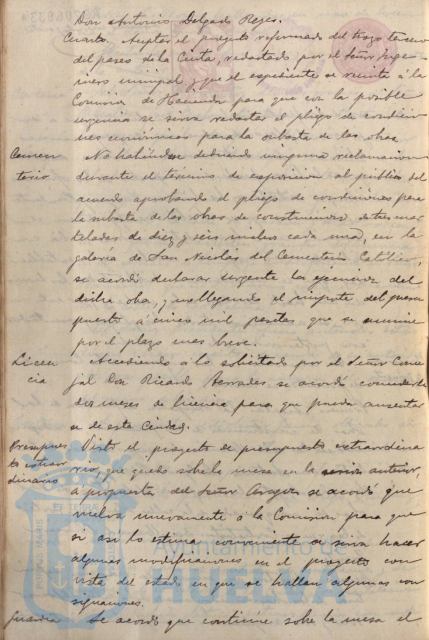 Don Antonio Delgado Reyes.
Cuarto. Aceptar el proyecto reformado del trozo tercero
del paseo de la Cinta, redactado por el Señor Inge-
niero municipal y que el expediente se remita á la
Comisión de Hacienda para que con la posible
urgencia se sirva redactar el pliego de condicio-
nes económicas para la subasta de las obras
Cemen-
terio
No habiéndose deducido ninguna reclamación
durante el termino de exposición al público del
acuerdo aprobando el pliego de condiciones para
la subasta de las obras de construcción de tres
de diez y seis nichos cada una, en la
galeria de San Nicolás del Cementerio Católico,
se acordó declarar urgente la ejecución del
dicha obra, y no llegando el importe del presu
puesto á cinco mil pesetas que se anuncie
por el plazo mas breve.
Licen
cia
Accediendo á lo solicitado por el Señor Conce
jal Don Ricardo Terrades se acordó concederle
dos meses de licencia para que pueda ausentar
se de esta Ciudad.
Presupues
to extraor
dinario
Visto el proyecto de presupuesto extraordina
rio, que quedó sobre la mesa en la sesion anterior,
á propuesta del Señor Aragon se acordó que
vuelva nuevamente á la Comisión para que
si asi lo estima conveniente se sirva hacer
algunas modificaciones en el proyecto con
vista del estado en que se hallan algunas con
signaciones.
Guardia
Se acordó que continúe sobre la mesa el
Ayuntamiento de
HUELVA